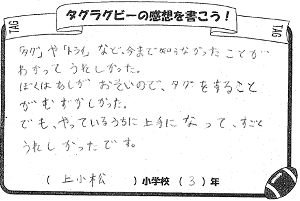 タグラグビーの感想を書こう！
TAG
TAG
「タグ」や「トライ」など、今まで知らなかったことが
わかってうれしかった。
ぼくはあしがおそいので、タグをすること
がむずかしかった。
でも、やっているうちに上手になって、すごく
うれしかったです。
（ 上小松 ）小学校（ 3 ）年